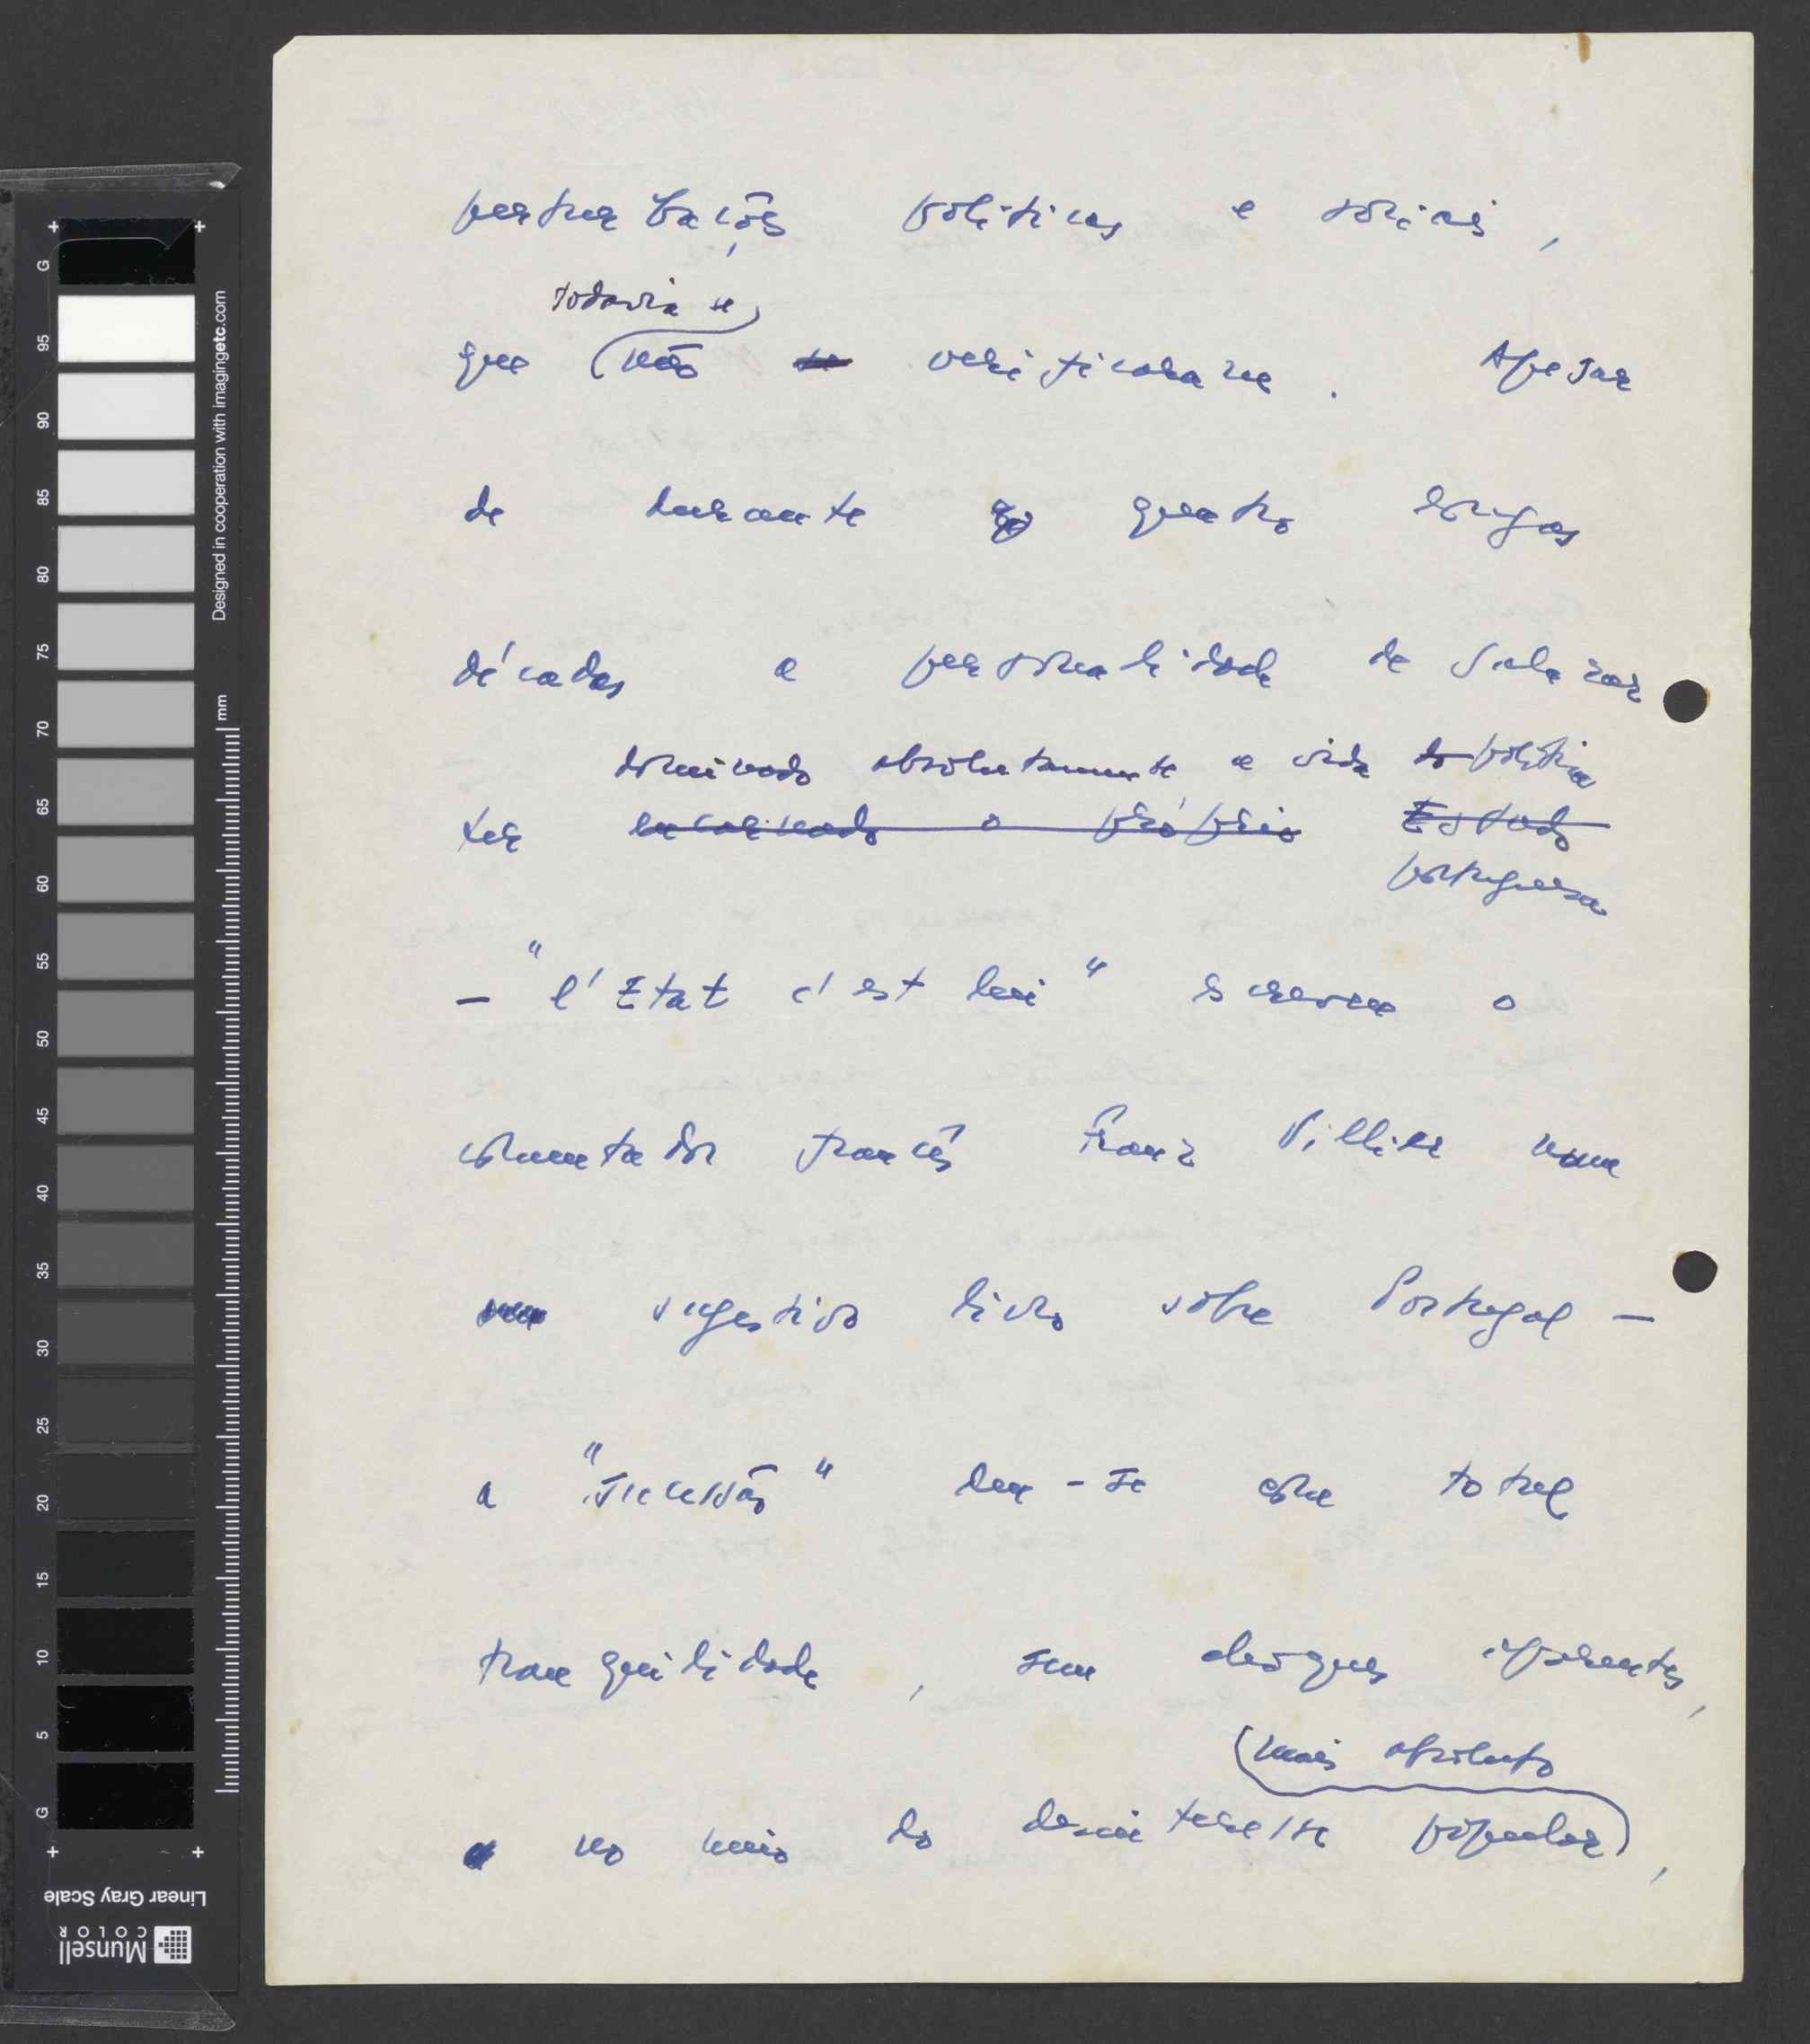 perturbações politicas e sociais,
todavia se
que não se verificaram. Apesar
de durante quatro longas
décadas a personalidade de Salazar
dominado absolutamente a vida do politica
ter encarnado o próprio Estado
portuguesa
- "l'Etat c'est lui" escreveu o
comentador francês Franz Villier num
sugestivo livro sobre Portugal -
a "sucessão" deu-se com total
tranquilidade, sem choques aparentes,
mais absoluto
no meio do desinteresse popular,
G 95 90 85 80 75 70 65 60 55 50 45 40 35 30 25 20 15 10 5 G
mm
Designed in cooperation with imagingetc.com
Linear Gray Scale
Munsell
COLOR